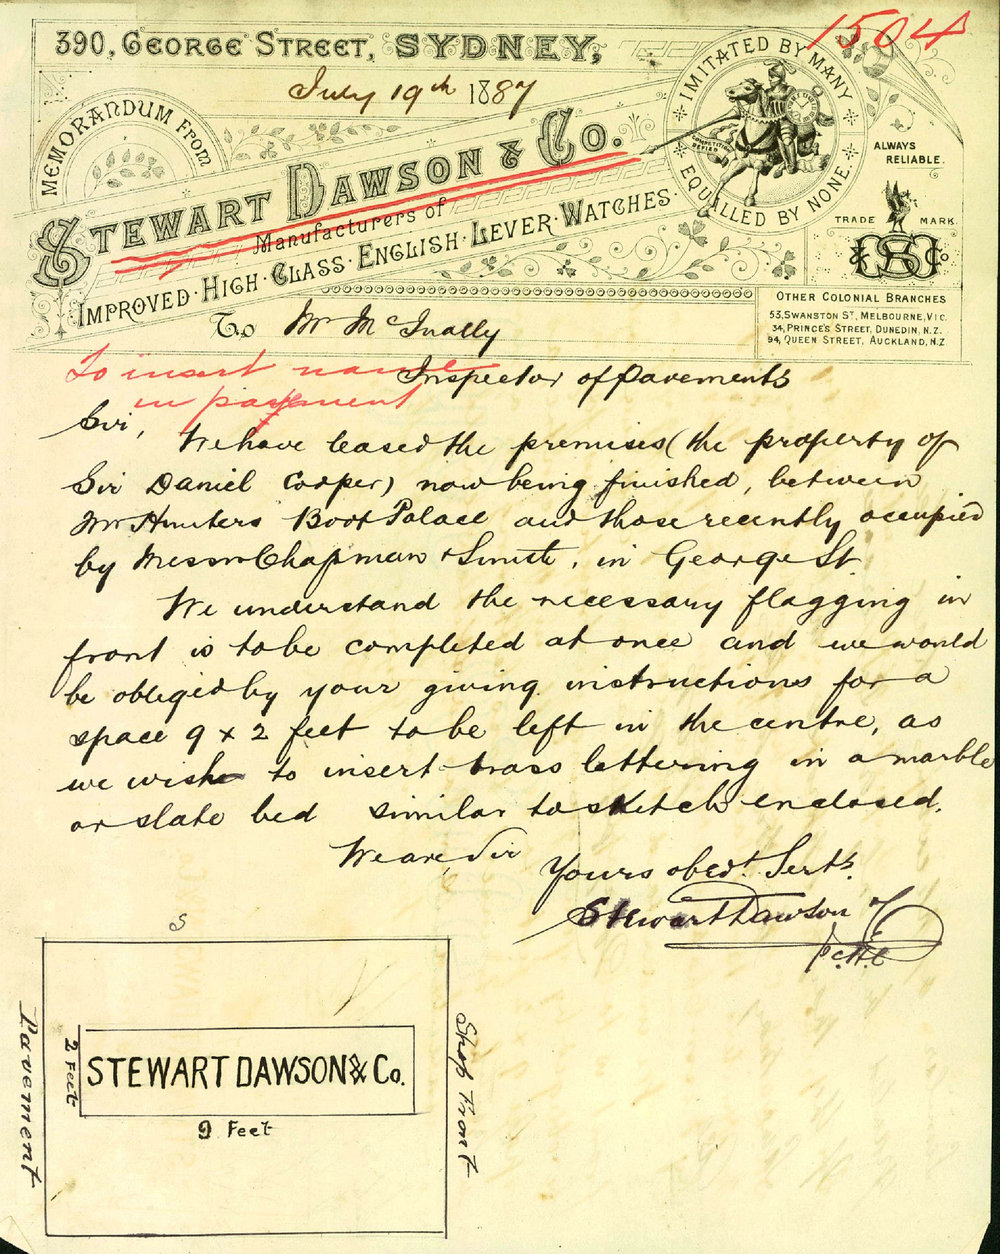 1504
390, GEORGE STREET, SYDNEY,
July 19th 1887
MEMORANDUM FROM
STEWART DAWSON & CO.
Manufacturers of
IMPROVED · HIGH · CLASS · ENGLISH · LEVER · WATCHES ·
IMITATED BY MANY
EQUALLED BY NONE.
ALWAYS
RELIABLE.
TRADE MARK.
OTHER COLONIAL BRANCHES
53, SWANSTON ST, MELBOURNE, VIC.
34, PRINCE'S STREET, DUNEDIN, N.Z.
94, QUEEN STREET, AUCKLAND, N.Z
To Mr McInally
Inspector of Pavements
To insert name
in payement
Sir,
We have leased the premises (the property of
Sir Daniel Cooper) now being finished, between
Mr Hunters Boot Palace and those recently occupied
by Messrs Chapman & Smith, in George St
We understand the necessary flagging in
front is to be completed at once and we would
be obliged by your giving instructions for a
space 9 x 2 feet to be left in the centre, as
we wish to insert brass lettering in a marble
or slate bed similar to sketch enclosed.
We are, Sir
Yours obedt. Servts.
Stewart Dawson & Co
S
Pavement
2 Feet
STEWART DAWSON & Co.
9 Feet
Shop Front